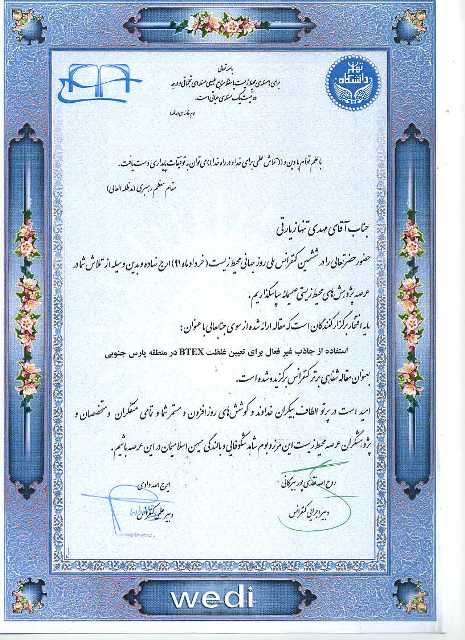 باسمه تعالی
با علم توام با دین و ((تلاش علمی برای خدا و در راه خدا)) می توان به توفیقات پایداری دست یافت.
مقام معظم رهبری (مدظله العالی)
جناب آقای مهدی تنها زیارتی
حضور حضرتعالی را در ششمین کنفرانس ملی روز جهانی محیط زیست (خرداد ماه ۹۱) ارج نهاده و بدین وسیله از تلاش شما در
عرصه پژوهش های محیط زیستی صمیمانه سپاسگذاریم.
مایه افتخار برگزارکنندگان است که مقاله ارائه شده از سوی جنابعالی با عنوان:
استفاده از جاذب غیر فعال برای تعیین غلظت BTEX در منطقه پارس جنوبی
بعنوان مقاله شفاهی برتر کنفرانس برگزیده شده است.
امید است در پرتو الطاف بیکران خداوند و کوشش های روز افزون و مستمر شما و تمامی متفکران و متخصصان و
پژوهشگران عرصه محیط زیست این مرز و بوم شاهد شکوفایی و بالندگی میهن اسلامیمان در این عرصه باشیم.
ایرج
روح اله
دبیر علمی کنفرانس
دبیر اجرایی کنفرانس
wedi